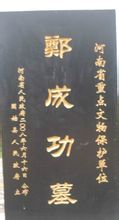 河南省重点文物保护单位
鄭成功墓
河南省人民政府二〇〇八年六月十六日公布
固始县人民政府立